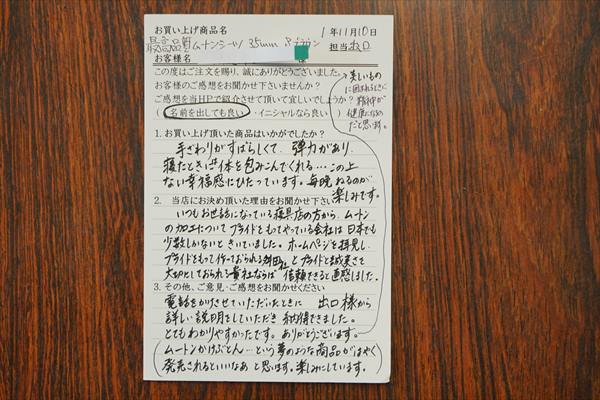 お買い上げ商品名
1年11月10日
最高品質 ムートンシーツ 35mm
担当 出口
お客様名
この度はご注文を賜り、誠にありがとうございました。
お客様のご感想をお聞かせ下さいませんか?
ご感想を当HPで紹介させて頂いて宜しいでしょうか?
(名前を出しても良い・イニシャルなら良い)
美しいもの
に囲まれると
精神が
健康になる
だと思います。
1. お買い上げ頂いた商品はいかがでしたか?
手ざわりがすばらしくて、弾力があり、
寝たときに体を包みこんでくれる…この上
ない幸福感にひたっています。毎晩ねるのが
楽しみです。
2. 当店にお決め頂いた理由をお聞かせ下さい
いつもお世話になっている寝具店の方から、ムートン
の加工についてプライドをもってやっている会社は日本でも
少数しかないときいていました。ホームページを拝見し、
プライドをもって作っておられる 社とプライドと誠実さを
大切にしておられる貴社ならば信頼できると直感しました。
3. その他、ご意見・ご感想をお聞かせください
電話をかけさせていただいたときに 出口様から
詳しい説明をしていただき 納得できました。
とてもわかりやすかったです。ありがとうございます。
(ムートンかけぶとん…という夢のような商品がはやく
発売されるといいなあ と思います。楽しみにしています。)